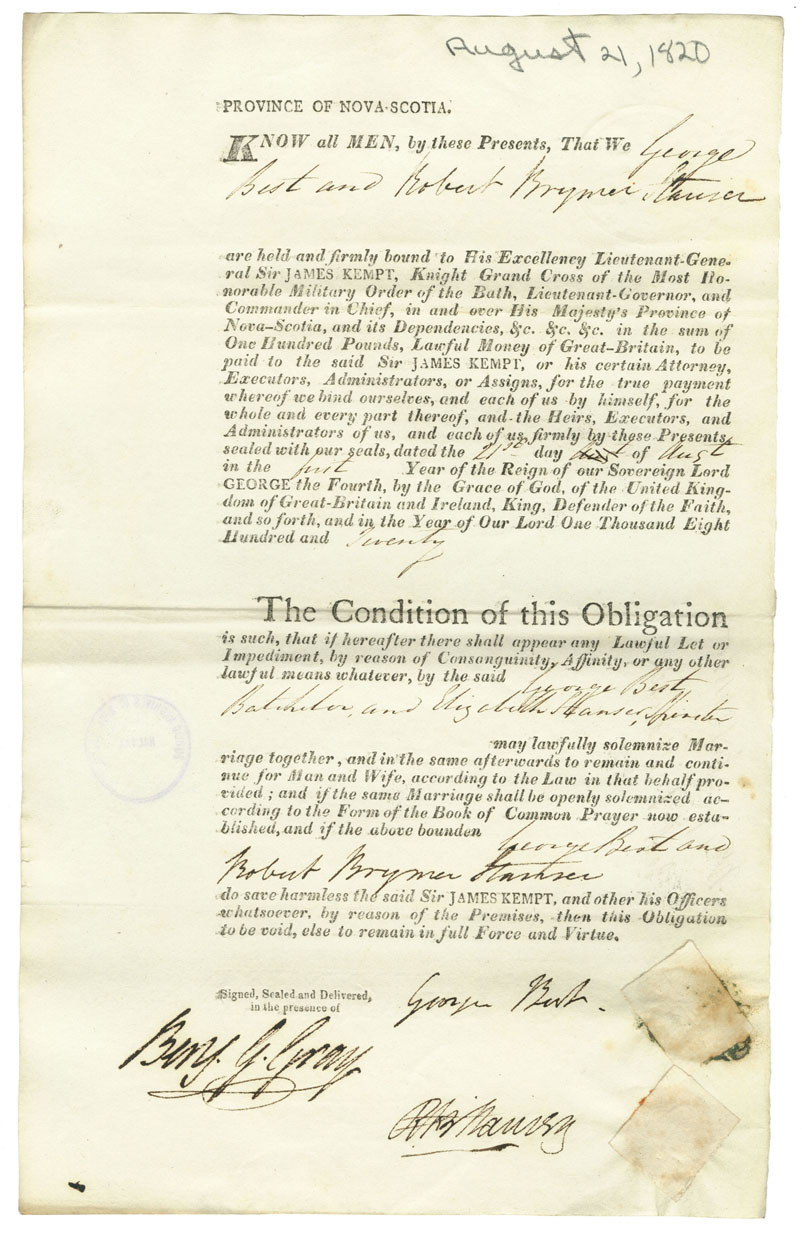 August 21, 1820
PROVINCE OF NOVA-SCOTIA.
KNOW all MEN, by these Presents, That We George
Best and Robert Brymer Stanser
are held and firmly bound to His Excellency Lieutenant-Gene-
ral Sir JAMES KEMPT, Knight Grand Cross of the Most Ho-
norable Military Order of the Bath, Lieutenant-Governor, and
Commander in Chief, in and over His Majesty's Province of
Nova-Scotia, and its Dependencies, &c. &c. &c. in the sum of
One Hundred Pounds, Lawful Money of Great-Britain, to be
paid to the said Sir JAMES KEMPT, or his certain Attorney,
Executors, Administrators, or Assigns, for the true payment
whereof we bind ourselves, and each of us by himself, for the
whole and every part thereof, and the Heirs, Executors, and
Administrators of us, and each of us, firmly by these Presents,
sealed with our seals, dated the 21st day of Augst
in the first Year of the Reign of our Sovereign Lord
GEORGE the Fourth, by the Grace of God, of the United King-
dom of Great-Britain and Ireland, King, Defender of the Faith,
and so forth, and in the Year of Our Lord One Thousand Eight
Hundred and Twenty
The Condition of this Obligation
is such, that if hereafter there shall appear any Lawful Let or
Impediment, by reason of Consanguinity, Affinity, or any other
lawful means whatever, by the said George Best,
Batchelor, and Elizabeth Stanser, Spinster
may lawfully solemnize Mar-
riage together, and in the same afterwards to remain and conti-
nue for Man and Wife, according to the Law in that behalf pro-
vided; and if the same Marriage shall be openly solemnized ac-
cording to the Form of the Book of Common Prayer now esta-
blished, and if the above bounden George Best and
Robert Brymer Stanser
do save harmless the said Sir JAMES KEMPT, and other his Officers
whatsoever, by reason of the Premises, then this Obligation
to be void, else to remain in full Force and Virtue.
Signed, Sealed and Delivered,
in the presence of
George Best.
Benj. G. Gray
RB Stanser